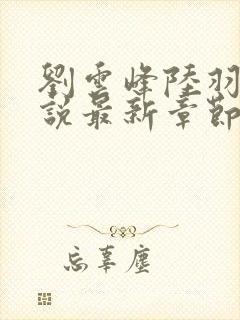 劉雲峰陸羽
說最新章節
忘辜塵